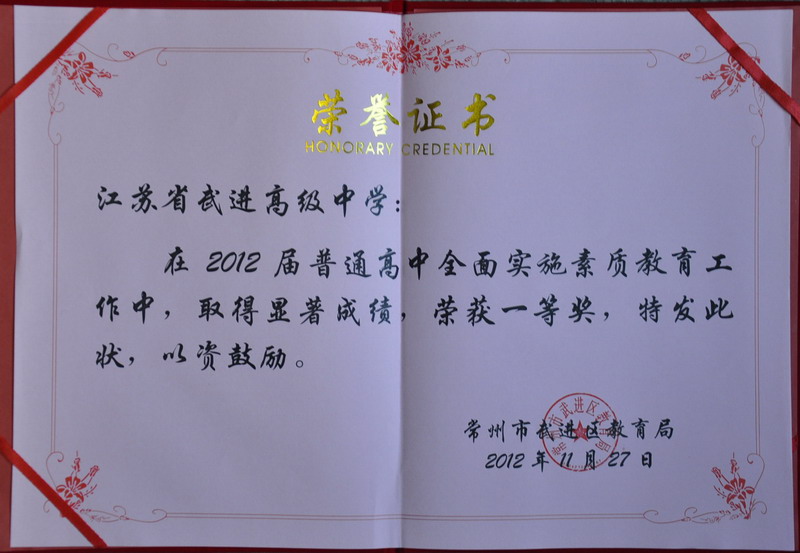 荣誉证书
HONORARY CREDENTIAL
江苏省武进高级中学：
在 2012 届普通高中全面实施素质教育工
作中，取得显著成绩，荣获一等奖，特发此
状，以资鼓励。
常州市武进区教育局
2012 年 11 月 27 日